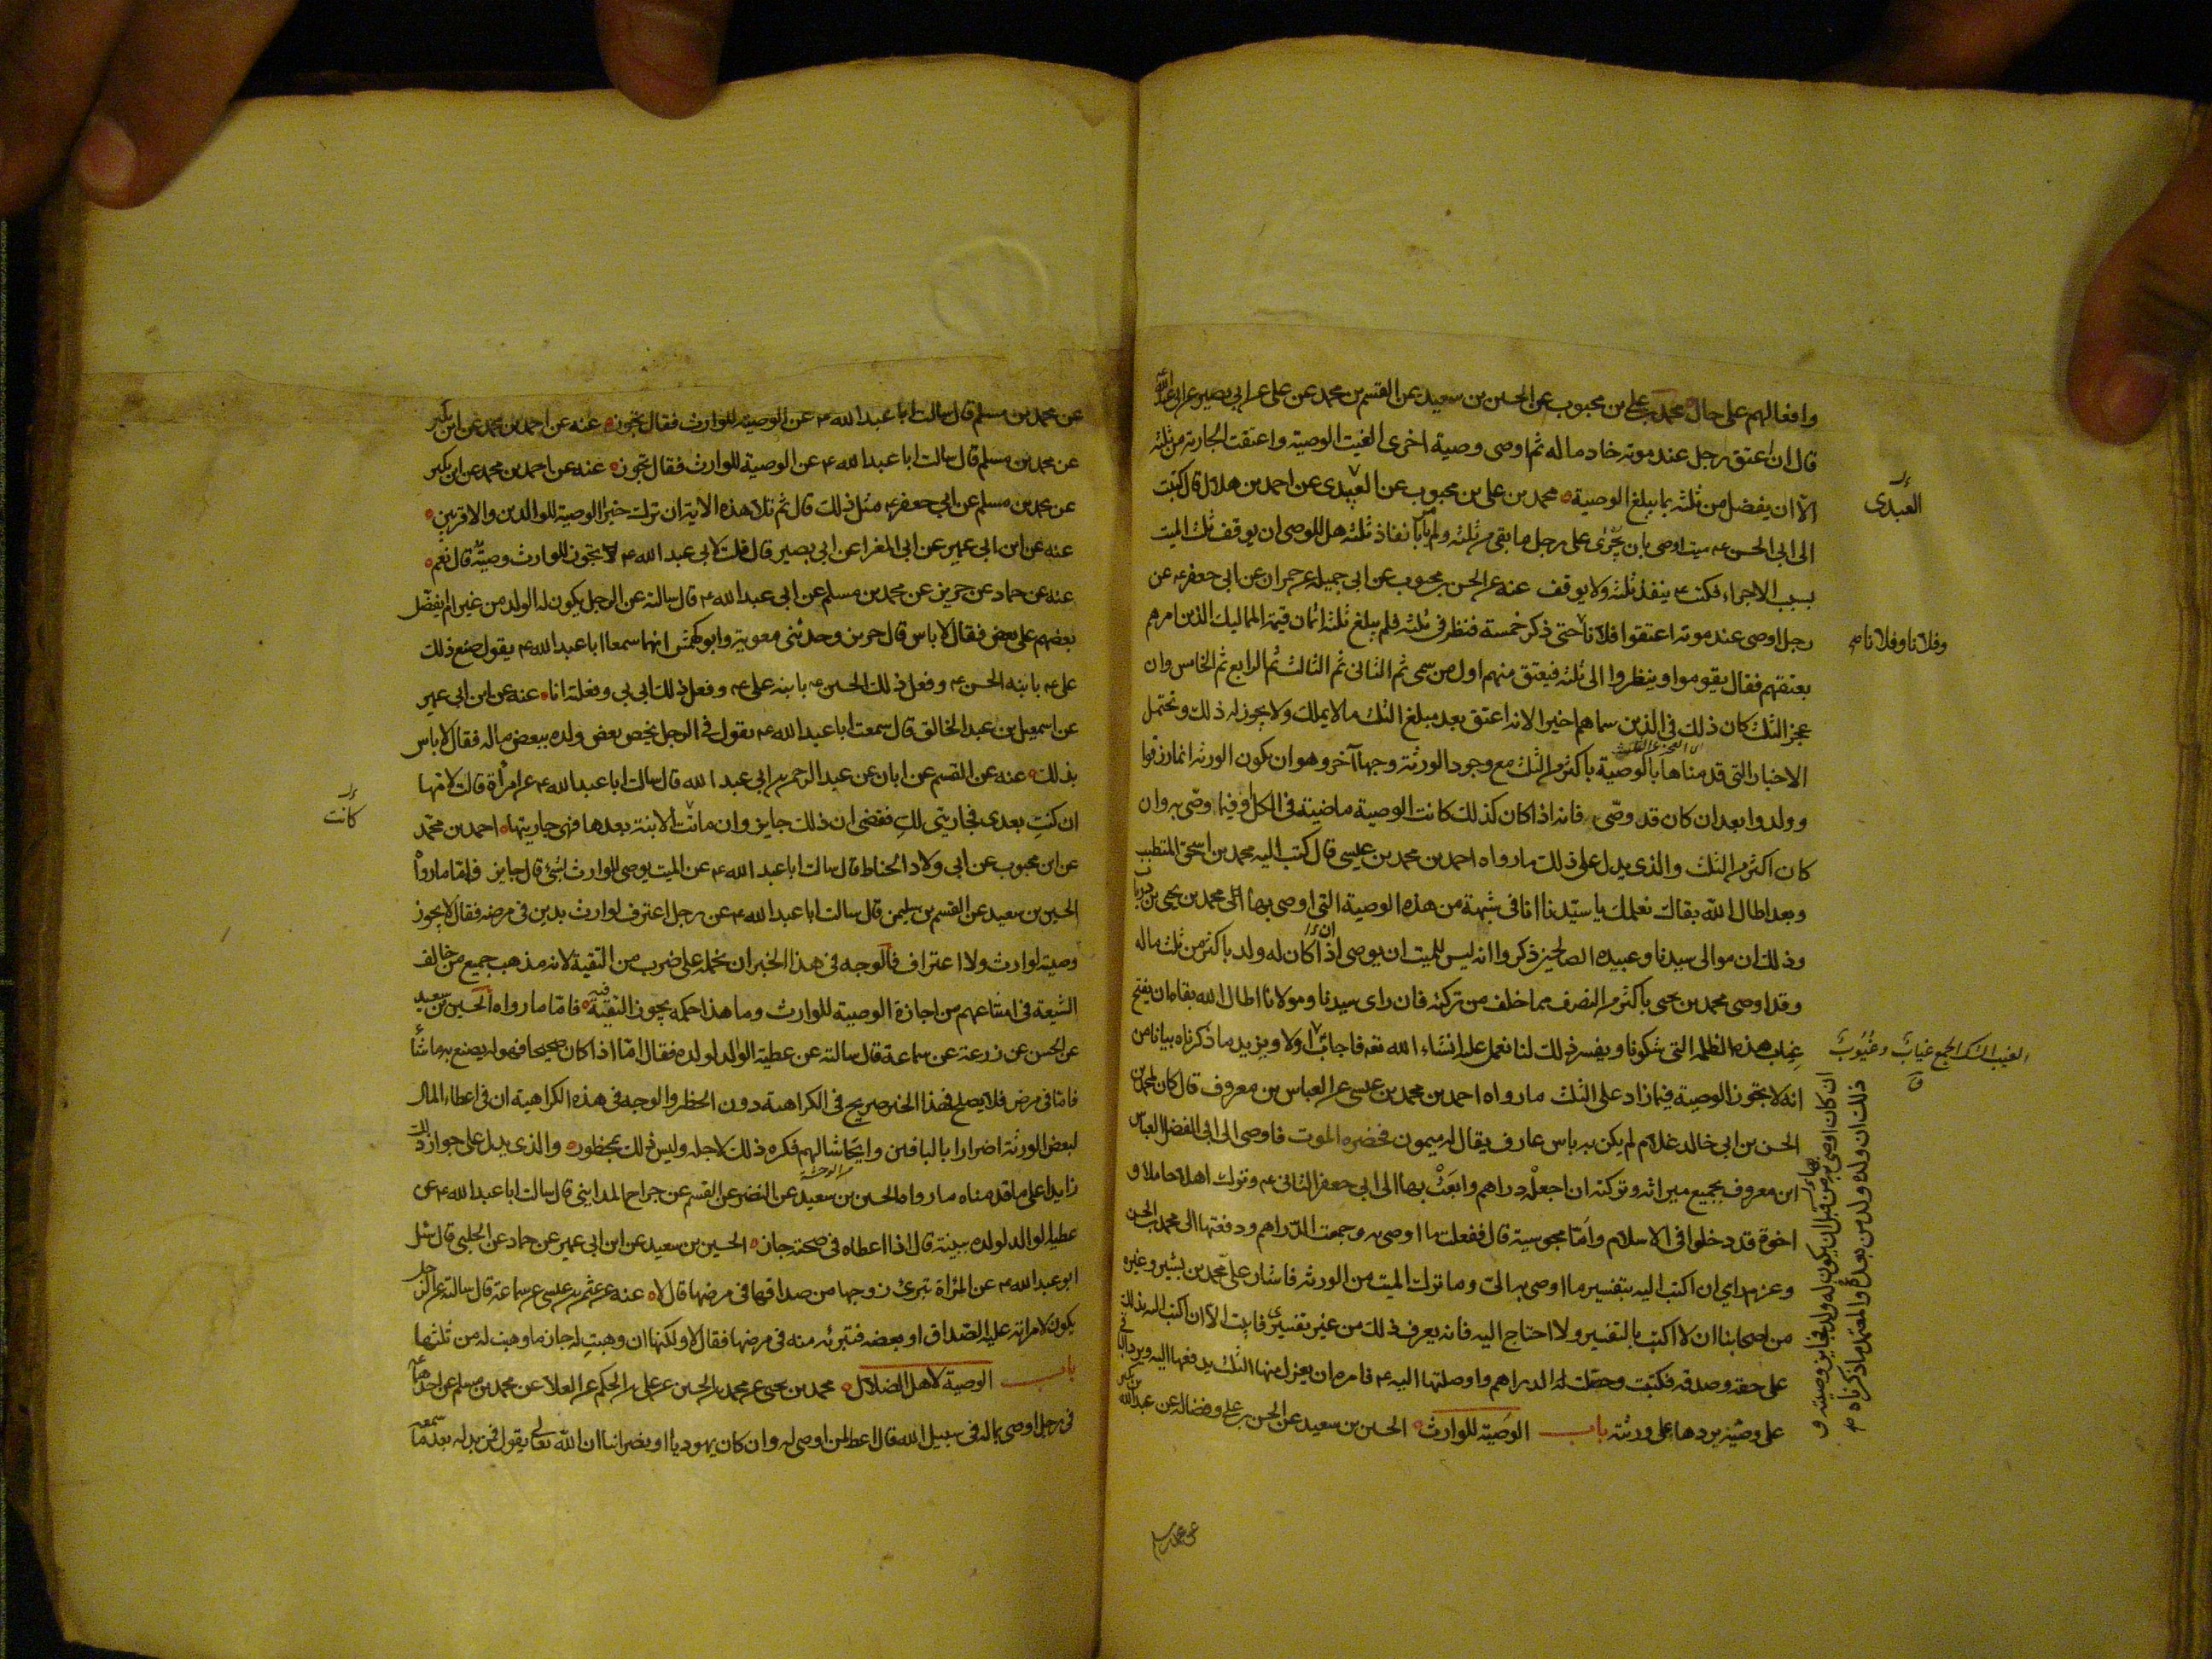 وافعالهم على حال محمد بن علي بن محبوب عن الحسين بن سعيد عن القسم بن محمد عن علي عن ابي بصير عن ابي عبد الله
قال ان اعتق رجل عند موته خادما له ثم اوصى وصية اخرى الغيت الوصية واعتقت الجارية من ثلثه
الا ان يفضل من ثلثه ما يبلغ الوصية محمد بن علي بن محبوب عن العبيدى عن احمد بن هلال قال كتبت
العبدى
الى ابي الحسن ع ميت اوصى بان يجرى على رجل ما بقى من ثلثه ولم يامر بانفاذ ثلثه هل للوصى ان يوقف ثلث الميت
بسبب الاجراء فكتب ع ينفذ ثلثه ولا يوقف عنه عن الحسن بن محبوب عن ابي جميله عن حمران عن ابي جعفر ع عن
رجل اوصى عند موته اعتقوا فلانا حتى ذكر خمسة فنظر في ثلثه فلم يبلغ ثلثه اثمان قيمة المماليك الذين امرهم
وفلانا وفلانا
بعتقهم فقال يقوموا وينظروا الى ثلثه فيعتق منهم اول من سمى ثم الثانى ثم الثالث ثم الرابع ثم الخامس وان
عجز الثلث كان ذلك في الذين سماهم اخيرا لانه اعتق بعد مبلغ الثلث ما لا يملك ولا يجوز له ذلك ويحتمل
الاخبار التي قدمناها بالوصية باكثر من الثلث مع وجود الورثة وجها آخر وهو ان يكون الورثه انما رزقوا
وولدوا بعد ان كان قد وصى فانه اذا كان كذلك كانت الوصية ماضية في الكل او فيما وصى به وان
كان اكثر من الثلث والذى يدل على ذلك ما رواه احمد بن محمد بن عيسى قال كتب اليه محمد بن اسحق المتطبب
وبعد اطال الله بقاك نعلمك يا سيدنا انا في شبهة من هذه الوصية التي اوصى بها محمد بن يحيى بن درياب
وذلك ان موالى سيدنا وعبيده الصالحين ذكروا انه ليس للميت ان يوصى اذا كان له ولد باكثر من ثلث ماله
وقد اوصى محمد بن يحيى باكثر من النصف مما خلف من تركته فان راى سيدنا ومولانا اطال الله بقاه ان يفتح
غياب هذه الظلمه التي شكونا ويفسر ذلك لنا نعمل عليه انشاء الله تع فاجاب اولا ويزيد ما ذكرناه بيانا من
الغيب الشك الجمع غياب وغيوب
ق
انه لا تجوز الوصية فيما زاد على الثلث ما رواه احمد بن محمد بن عيسى عن العباس بن معروف قال كان لمحمد بن
الحسن بن ابي خالد غلام لم يكن به باس عارف يقال له ميمون فحضره الموت فاوصى الى ابي الفضل العباس
ابن معروف بجميع ميراثه وتركته ان اجعله دراهم وابعث بها الى ابي جعفر الثانى ع وترك اهلا حاملا و
اخوة قد دخلوا في الاسلام واما مجوسية قال ففعلت ما اوصى به وجمعت الدراهم ودفعتها الى محمد بن الحسن
وعزم رايي ان اكتب اليه بتفسير ما اوصى به الى وما ترك الميت من الورثه فاشار على محمد بن بشير وغيره
من اصحابنا ان لا اكتب بالتفسير ولا احتاج اليه فانه يعرف ذلك من غير تفسيرى فابيت الا ان اكتب اليه بذلك
على حقه وصدقه فكتبت وحصلت الدراهم واوصلتها اليه ع فامره ان يعزل منها الثلث يدفعها اليه ويرد الباقى
على وصيه يردها على ورثته باب الوصية للوارث الحسين بن سعيد عن الحسن بن على وفضاله عن عبد الله بن بكير
ان كان اوصى بها من قبل ان يكون له ولد فجايز وصيته و
ذلك ان ولده ولد من بعده والمعتمد ما ذكرناه
عن محمد بن مسلم
عن محمد بن مسلم قال سالت ابا عبد الله ع عن الوصية للوارث فقال تجوز عنه عن احمد بن محمد عن ابن بكير
عن محمد بن مسلم قال سالت ابا عبد الله ع عن الوصية للوارث فقال تجوز عنه عن احمد بن محمد عن ابن بكير
عن محمد بن مسلم عن ابي جعفر ع مثل ذلك قال ثم تلا هذه الاية ان ترك خيرا الوصية للوالدين والاقربين
عنه عن ابن ابي عمير عن ابي المغرا عن ابي بصير قال قلت لابي عبد الله ع تجوز للوارث وصية قال نعم
عنه عن حماد عن حريز عن محمد بن مسلم عن ابي عبد الله ع قال سالته عن الرجل يكون له الولد من غير ام يفضل
بعضهم على بعض فقال لا باس قال حريز وحدثنى معوية وابو كهمش انهما سمعا ابا عبد الله ع يقول صنع ذلك
على ع بابنه الحسن ع وفعل ذلك الحسين ع بابنه على ع وفعل ذلك ابي بي وفعلته انا عنه عن ابن ابي عمير
عن اسمعيل بن عبد الخالق قال سمعت ابا عبد الله ع يقول في الرجل يخص بعض ولده ببعض ماله فقال لا باس
بذلك عنه عن القسم عن ابان عن عبد الرحمن بن ابي عبد الله قال سالت ابا عبد الله ع عن امرأة قالت لامها
ان كنت بعدى فجاريتى لك فقضى ان ذلك جايز وان ماتت الابنة بعدها فهي جاريتها احمد بن محمد
كانت
عن ابن محبوب عن ابي ولاد الحناط قال سالت ابا عبد الله ع عن الميت يوصى للوارث بشيء قال جايز فاما ما رواه
الحسين بن سعيد عن القسم بن سليمن قال سالت ابا عبد الله ع عن رجل اعترف لوارث بدين في مرضه فقال لا يجوز
وصية لوارث ولا اعتراف فالوجه في هذا الخبر ان نحمله على ضرب من التقية لانه مذهب جميع من خالف
الشيعة في امتناعهم من اجازة الوصية للوارث وما هذا حكمه يجوز التقية فيه فاما ما رواه الحسين بن سعيد
عن الحسن عن زرعة عن سماعة قال سالته عن عطية الوالد لولده فقال اما اذا كان صحيحا فهو له يصنع به ما شاء
فاما في مرض فلا يصلح فهذا الخبر صريح في الكراهية دون الحظر والوجه في هذه الكراهية ان في اعطاء المال
لبعض الورثة اضرارا بالباقين وايحاشا لهم فكره ذلك لاجله وليس ذلك بمحظور والذى يدل على جواز ذلك
زايدا على ما قدمناه ما رواه الحسين بن سعيد عن النضر عن القسم عن جراح المدايني قال سالت ابا عبد الله ع عن
عطية الوالد لولده يبينه قال اذا اعطاه في صحته جاز الحسين بن سعيد عن ابن ابي عمير عن حماد عن الحلبي قال سئل
ابو عبد الله ع عن المراة تبرئ زوجها من صداقها في مرضها قال لا عنه عن عثمن بن عيسى عن سماعة قال سالته عن الرجل
يكون لامراته عليه الصداق او بعضه فتبرئه منه في مرضها فقال لا ولكنها ان وهبت له جاز ما وهبت له من ثلثها
باب الوصية لاهل الضلال محمد بن يحيى عن محمد بن الحسين عن على بن الحكم عن العلا عن محمد بن مسلم عن احدهما ع
في رجل اوصى بماله في سبيل الله قال اعطه لمن اوصى له وان كان يهوديا او نصرانيا ان الله تعالى يقول فمن بدله بعد ما سمعه